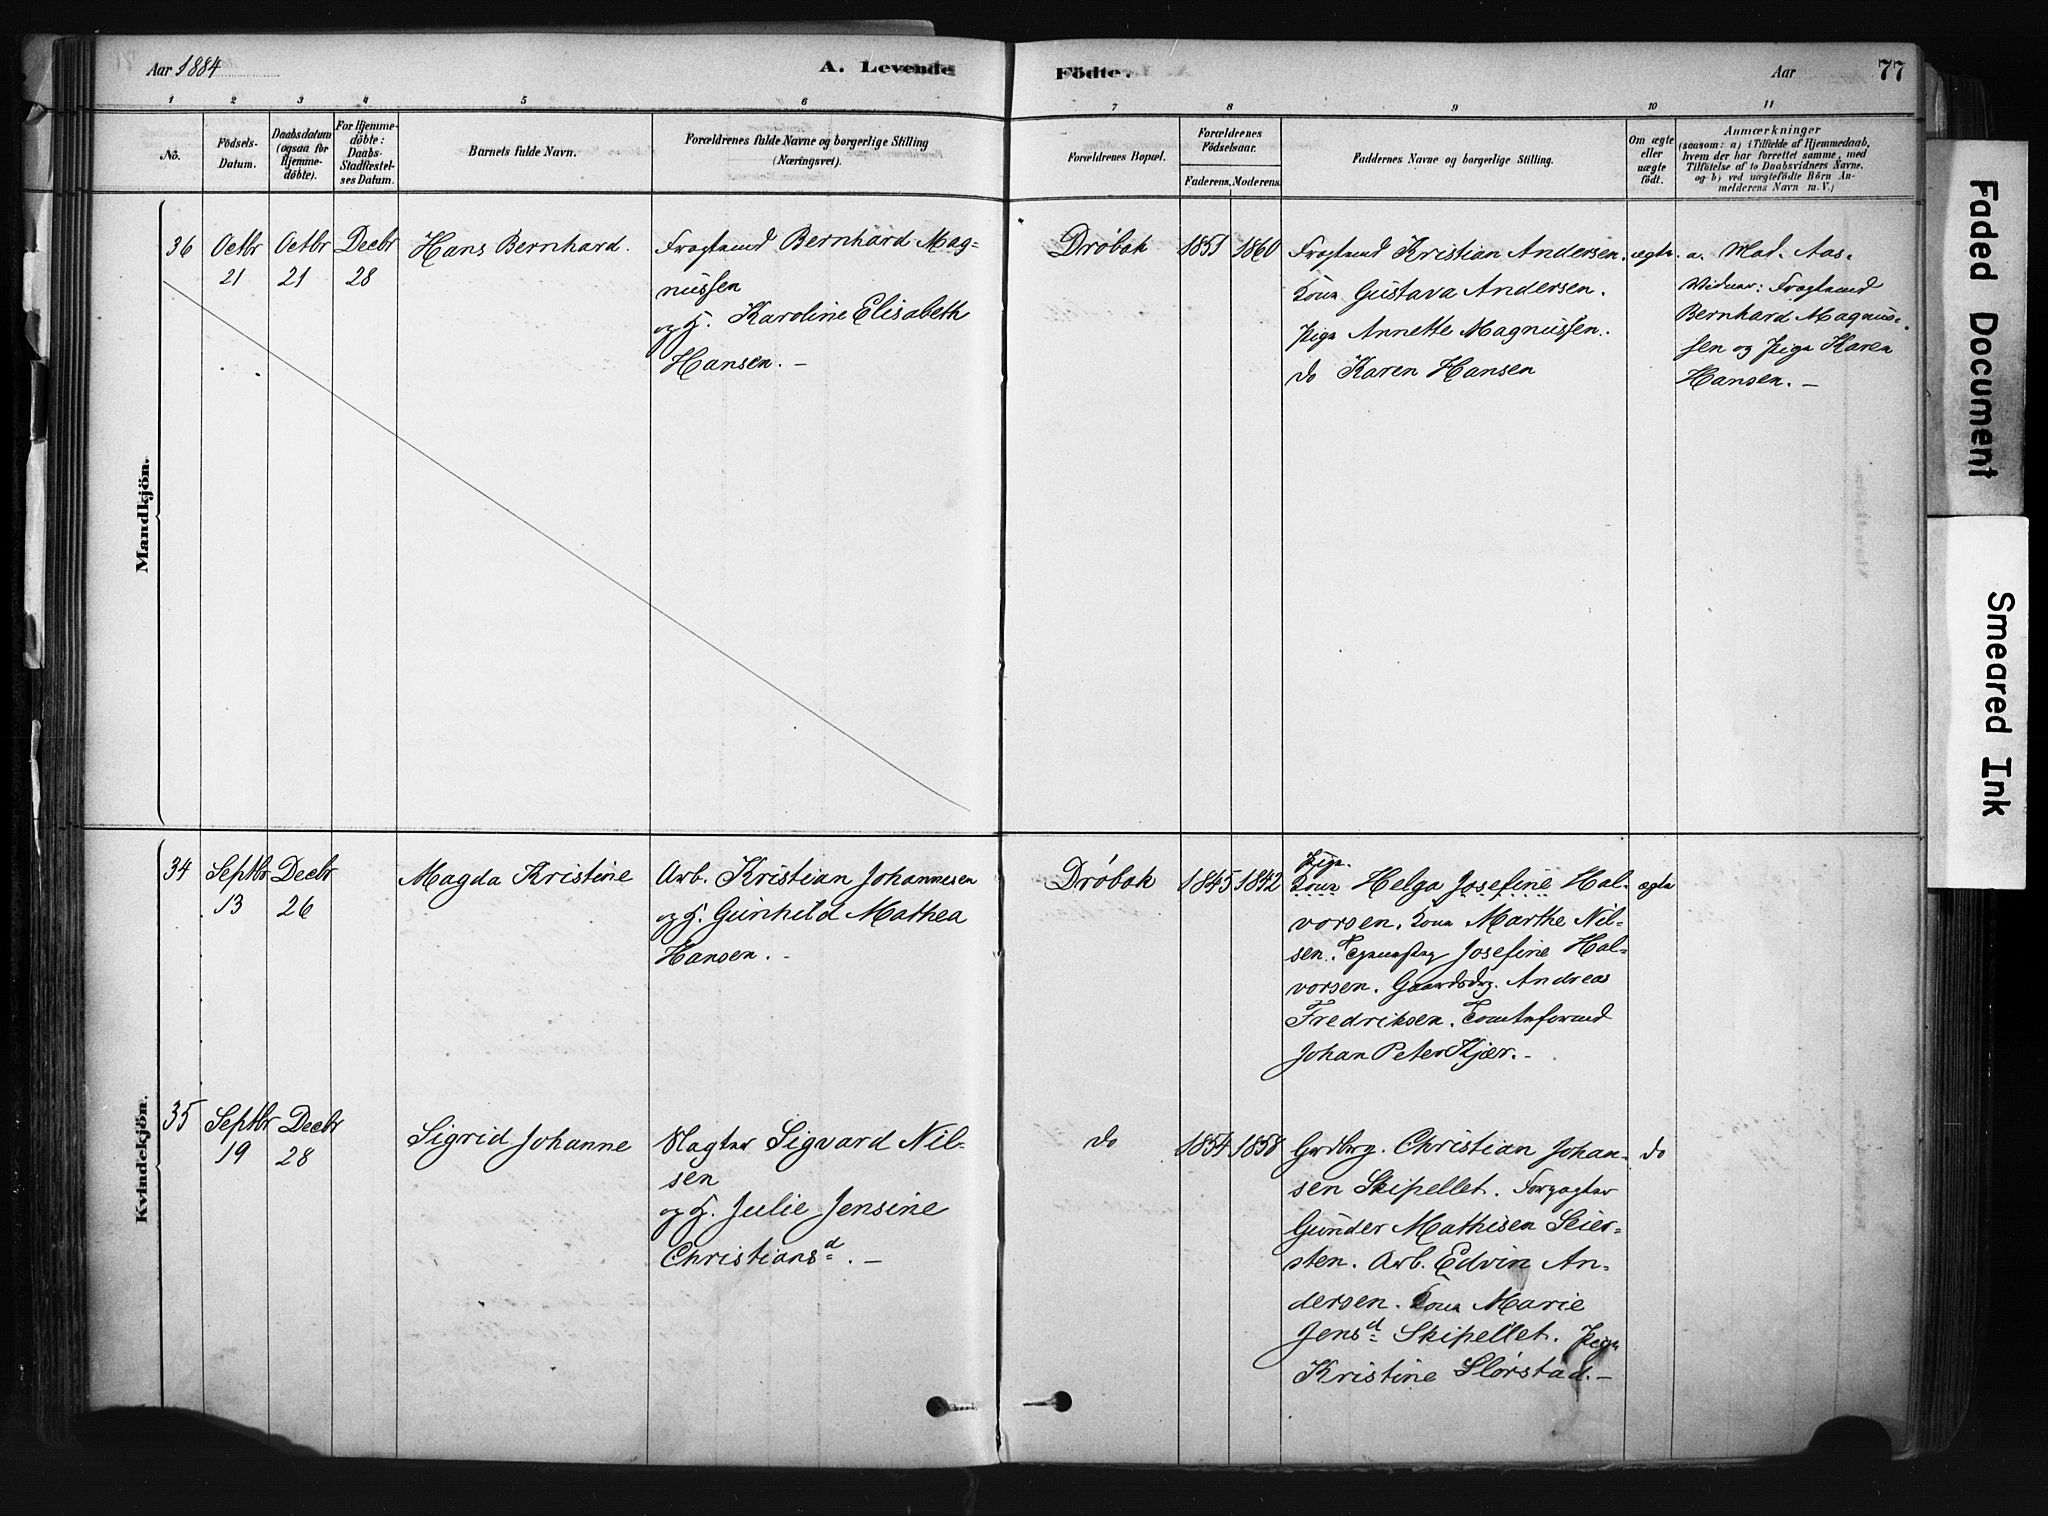 Aar 1884
A. Levende
Födte.
Aar
77
1 2 3 4 5 6 7 8 9 10 11
No.
Födsels-
Datum.
Daabsdatum
(ogsaa for
Hjemme-
döbte).
For Hjemme-
döbte:
Daabs-
Stadfæstel-
ses Datum.
Barnets fulde Navn.
Forældrenes fulde Navne og borgerlige Stilling
(Næringsvei).
Forældrenes Bopæl.
Forældrenes
Födselsaar.
Faderens. Moderens.
Faddernes Navne og borgerlige Stilling.
Om ægte
eller
uægte
födt.
Anmærkninger
(saasom: a) i Tilfælde af Hjemmedaab,
hvem der har forrettet samme, med
Tilföielse af to Daabsvidners Navne.
og b) ved uægtefödte Börn An-
melderens Navn m. V.)
Mandkjön.
36
Octbr
21
Octbr
21
Decbr
28
Hans Bernhard.
Fragtmd Bernhard Mag-
nussen
og H. Karoline Elisabeth
Hansen. —
Drøbak
1851
1860
Fragtmd Kristian Andersen.
Kona Gustava Andersen.
Pige Annette Magnussen.
do Karen Hansen
ægte
a. Mad. Aas.
Vidner: Fragtmd
Bernhard Magnus-
sen og Pige Karen
Hansen. —
Kvindekjön.
34
Septbr
13
Decbr
26
Magda Kristine
Arb. Kristian Johannesen
og H. Gunhild Mathea
Hansen. -
Drøbak
1845
1842
Pige.
Kona Helga Josefine Hal-
vorsen. Kona Marthe Nil-
sen. Josefine Hal-
vorsen. Gaardsdrg. Andreas
Fredriksen. Tomteformd
Johan Peter Kjær. -
ægte
35
Septbr
19
Decbr
28
Sigrid Johanne
Slagter Sigvard Nil-
sen
og H. Julie Jensine
Christiansd. —
do
1854
1858
Grdbrg. Christian Johan-
sen Skipellet. Forpagter
Gunder Mathisen Seier-
sten. Arb. Edvin An-
dersen. Kona Marie
Jensd Skipellet. Pige
Kristine Slørstad. —
do
Faded Document
Smeared Ink